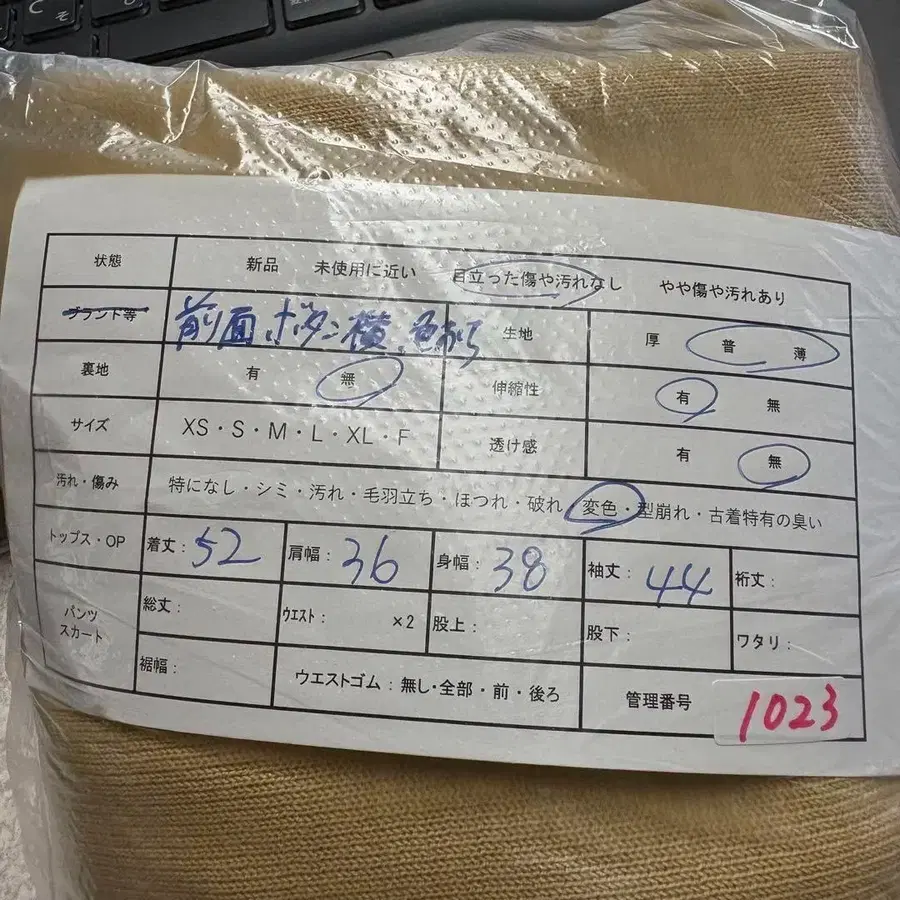 そ
状態 新品 未使用に近い 目立った傷や汚れなし やや傷や汚れあり
ブランド等 前面、ボタン横、色おち 生地 厚 普 薄
裏地 有 無 伸縮性 有 無
サイズ XS・S・M・L・XL・F 透け感 有 無
汚れ・傷み 特になし・シミ・汚れ・毛羽立ち・ほつれ・破れ・変色・型崩れ・古着特有の臭い
トップス・OP 着丈：52 肩幅：36 身幅：38 袖丈：44 裄丈：
パンツ スカート 総丈： ウエスト： ×2 股上： 股下： ワタリ：
裾幅： ウエストゴム：無し・全部・前・後ろ 管理番号 1023